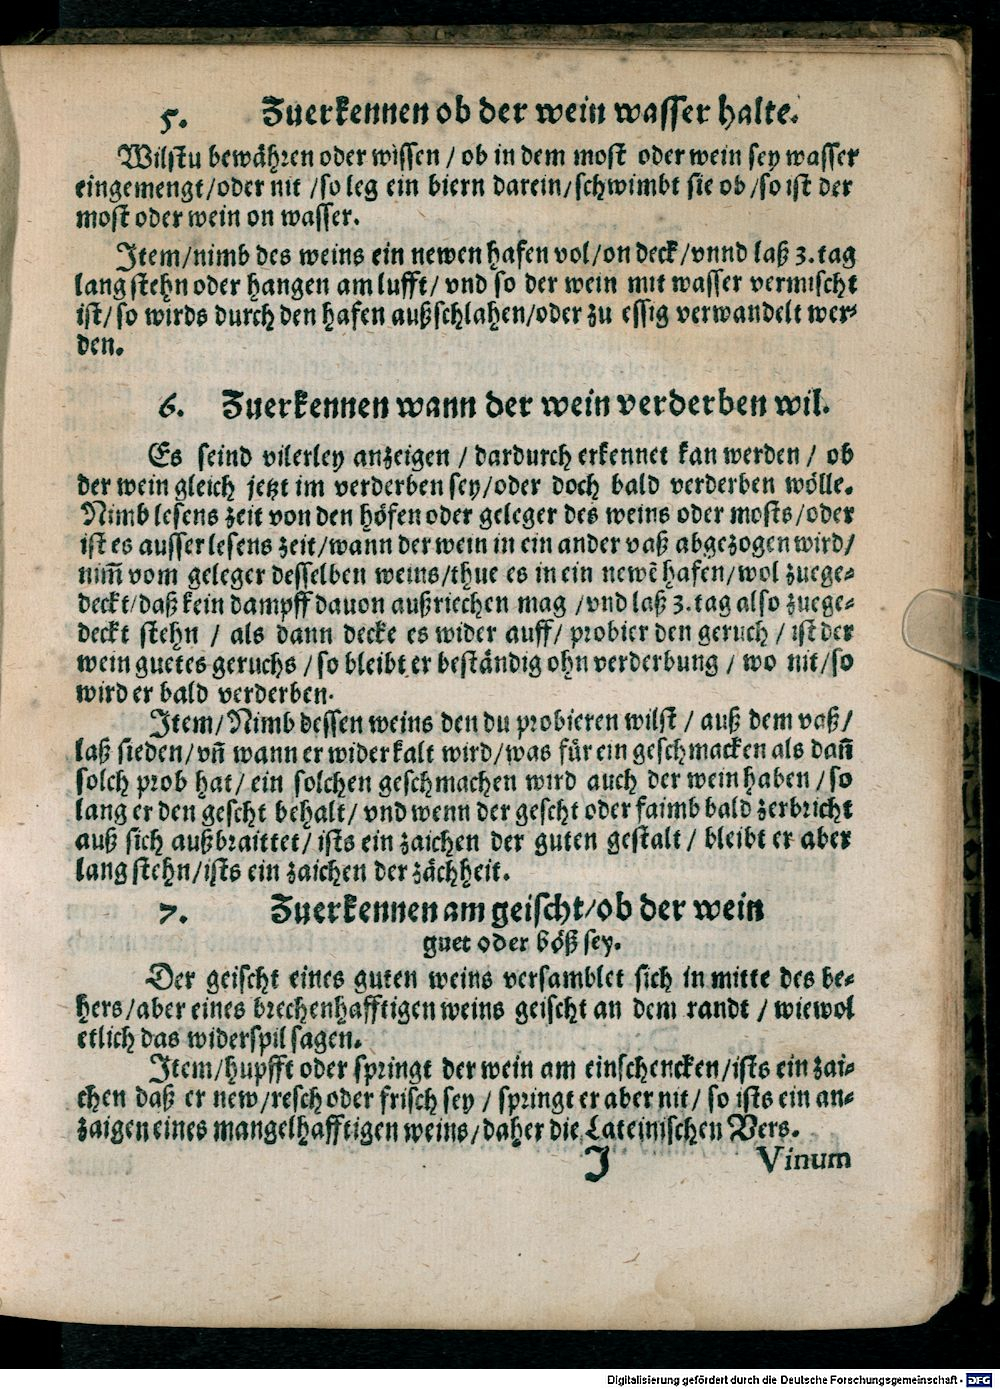 5. Zuerkennen ob der wein wasser halte.
Wilstu bewähren oder wissen / ob in dem most oder wein sey wasser
eingemengt/oder nit /so leg ein biern darein/schwimbt sie ob/so ist der
most oder wein on wasser.
Item/nimb des weins ein newen hafen vol/on deck/vnnd laß 3. tag
lang stehn oder hangen am lufft/ vnd so der wein mit wasser vermischt
ist/ so wirds durch den hafen außschlahen/oder zu essig verwandelt wer-
den.
6. Zuerkennen wann der wein verderben wil.
Es seind vilerley anzeigen / dardurch erkennet kan werden / ob
der wein gleich jetzt im verderben sey/oder doch bald verderben wölle.
Nimb lesens zeit von den höfen oder geleger des weins oder mosts/oder
ist es ausser lesens zeit/wann der wein in ein ander vaß abgezogen wird/
nim̄ vom geleger desselben weins/thue es in ein newē hafen/wol zuege-
deckt/daß kein dampff dauon außriechen mag /vnd laß 3. tag also zuege-
deckt stehn / als dann decke es wider auff/ probier den geruch / ist der
wein guetes geruchs /so bleibt er beständig ohn verderbung / wo nit/so
wird er bald verderben.
Item/Nimb dessen weins den du probieren wilst / auß dem vaß/
laß sieden/vn̄ wann er wider kalt wird/was für ein geschmacken als dan̄
solch prob hat/ ein solchen geschmachen wird auch der wein haben /so
lang er den gescht behalt/ vnd wenn der gescht oder faimb bald zerbricht
auß sich außbraittet/ ists ein zaichen der guten gestalt / bleibt er aber
lang stehn/ists ein zaichen der zächheit.
7. Zuerkennen am geischt/ob der wein
guet oder böß sey.
Der geischt eines guten weins versamblet sich in mitte des be-
hers/aber eines brechenhafftigen weins geischt an dem randt / wiewol
etlich das widerspil sagen.
Item/hupfft oder springt der wein am einschencken/ists ein zai-
chen daß er new/resch oder frisch sey / springt er aber nit/ so ists ein an-
zaigen eines mangelhafftigen weins/daher die Lateinischen Vers.
J Vinum
Digitalisierung gefördert durch die Deutsche Forschungsgemeinschaft - DFG